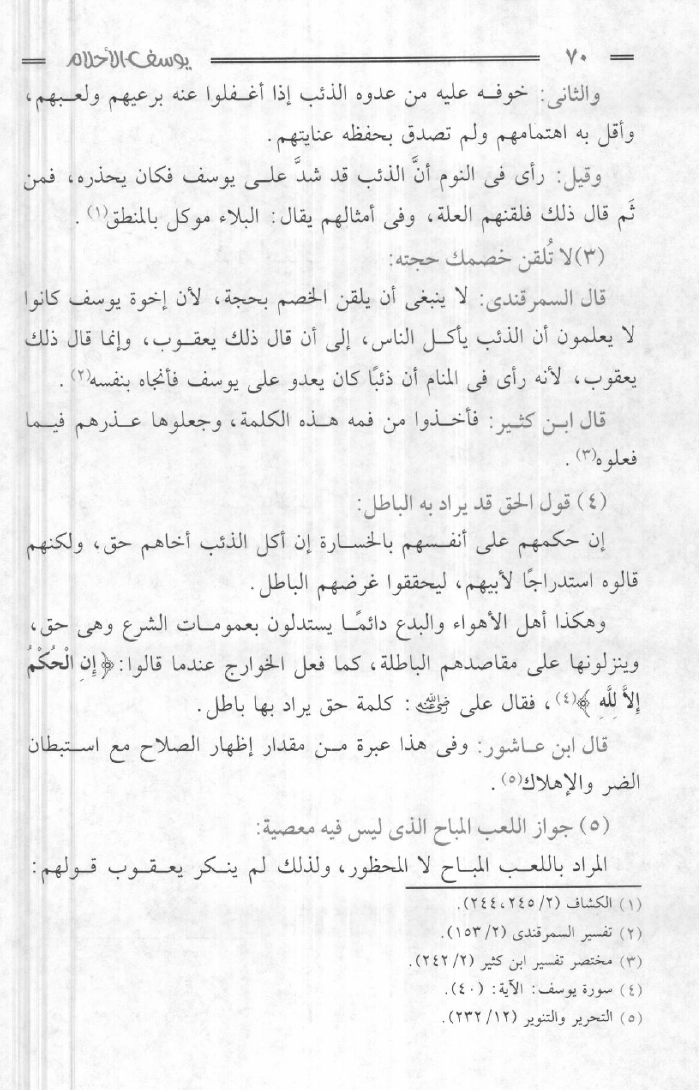 ٧٠ يوسف الأحلام
والثانى: خوفه عليه من عدوه الذئب إذا أغفلوا عنه برعيهم ولعبهم،
وأقل به اهتمامهم ولم تصدق بحفظه عنايتهم.
وقيل: رأى فى النوم أنَّ الذئب قد شدَّ على يوسف فكان يحذره، فمن
ثَم قال ذلك فلقنهم العلة، وفى أمثالهم يقال: البلاء موكل بالمنطق(١).
(٣) لا تُلقن خصمك حجته:
قال السمرقندى: لا ينبغى أن يلقن الخصم بحجة، لأن إخوة يوسف كانوا
لا يعلمون أن الذئب يأكل الناس، إلى أن قال ذلك يعقوب، وإنما قال ذلك
يعقوب، لأنه رأى فى المنام أن ذئبًا كان يعدو على يوسف فأنجاه بنفسه(٢).
قال ابن كثير: فأخذوا من فمه هذه الكلمة، وجعلوها عذرهم فيما
فعلوه(٣).
(٤) قول الحق قد يراد به الباطل:
إن حكمهم على أنفسهم بالخسارة إن أكل الذئب أخاهم حق، ولكنهم
قالوه استدراجًا لأبيهم، ليحققوا غرضهم الباطل.
وهكذا أهل الأهواء والبدع دائمًا يستدلون بعمومات الشرع وهى حق،
وينزلونها على مقاصدهم الباطلة، كما فعل الخوارج عندما قالوا: ﴿إِنِ الْحُكْمُ
إِلاَّ لِلَّهِ﴾(٤)، فقال على رضي الله عنه: كلمة حق يراد بها باطل.
قال ابن عاشور: وفى هذا عبرة من مقدار إظهار الصلاح مع استبطان
الضر والإهلاك(٥).
(٥) جواز اللعب المباح الذى ليس فيه معصية:
المراد باللعب المباح لا المحظور، ولذلك لم ينكر يعقوب قولهم:
(١) الكشاف (٢/ ٢٤٥، ٢٤٤).
(٢) تفسير السمرقندى (٢/ ١٥٣).
(٣) مختصر تفسير ابن كثير (٢/ ٢٤٢).
(٤) سورة يوسف: الآية: (٤٠).
(٥) التحرير والتنوير (١٢/ ٢٣٢).